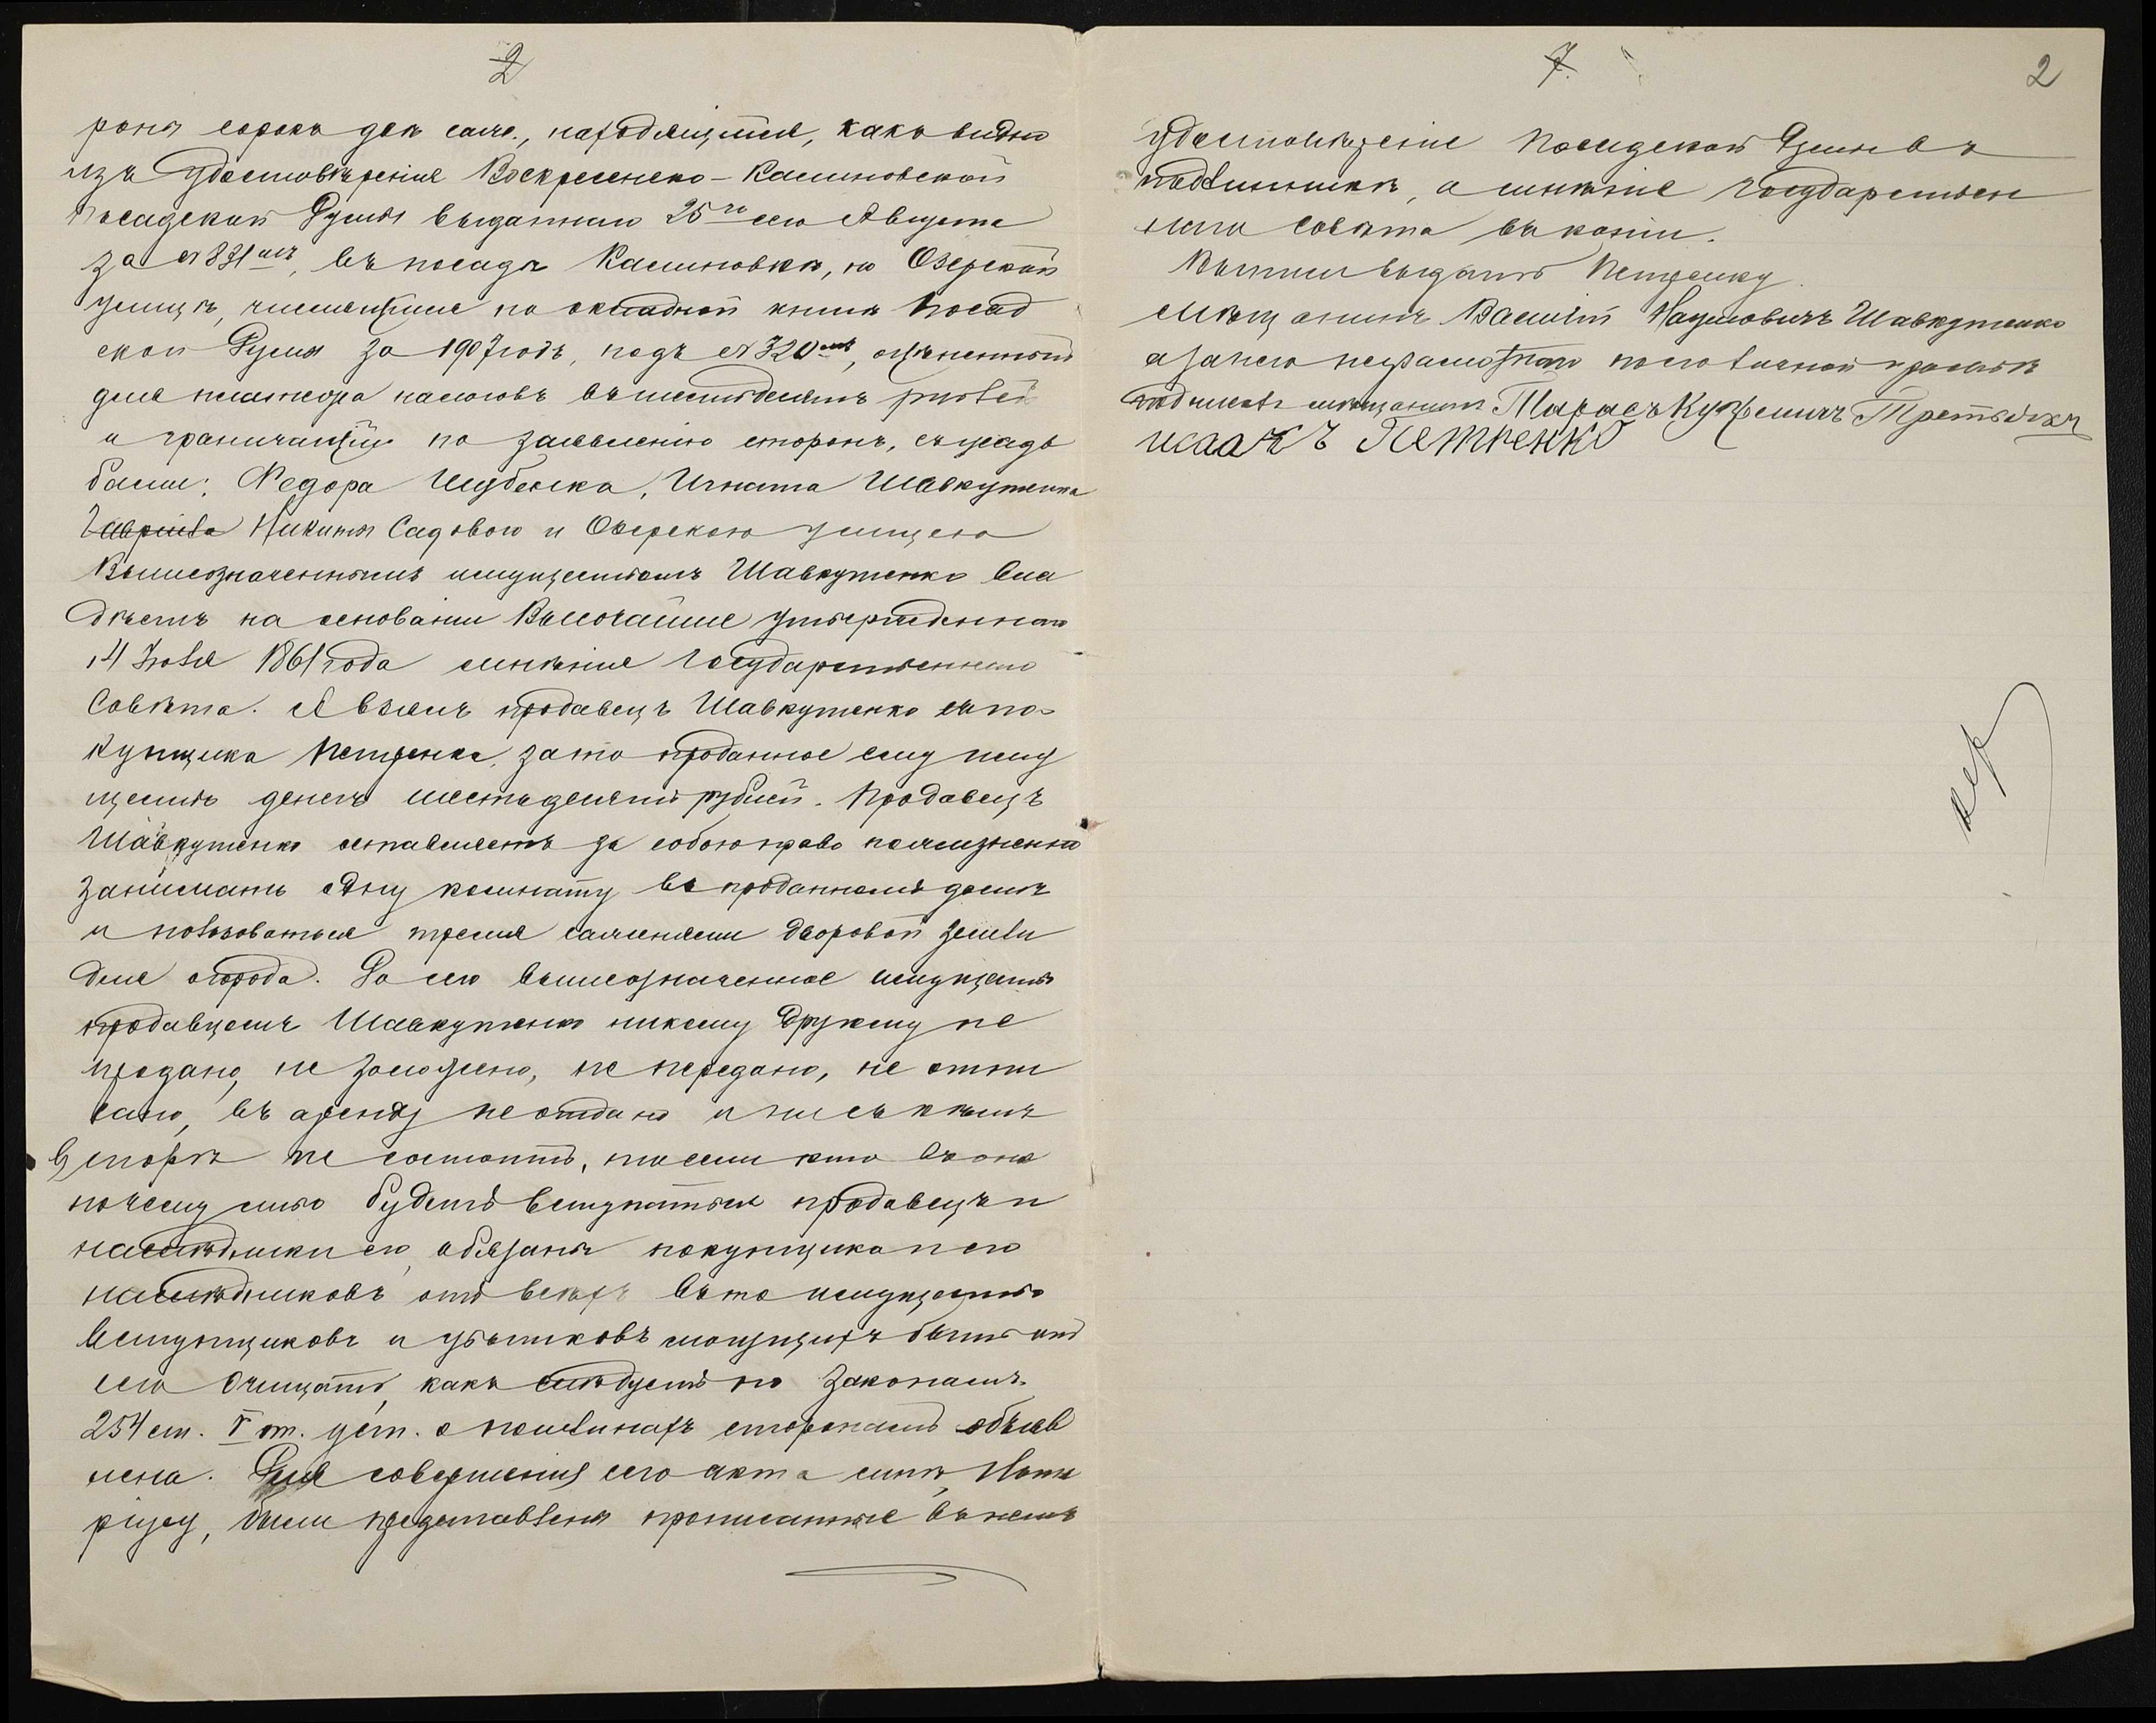 2
роны сорокъ два саж., находящимся, какъ видно
изъ удостовѣренія Воскресенско-Калиновской
Посадской Думы выданнаго 25го сего Августа
за № 831мъ, въ посадѣ Калиновкѣ, по Озерской
улицѣ, числящимся по окладной книгѣ Посад
ской Думы за 1907 годъ, подъ № 320мъ, оцѣненный
для платежа налоговъ въ шестьдесятъ рублей
и граничащій по заявленію сторонъ, съ усадь
бами: Федора Шубенка, Игната Шавкутенка
Гавріила Никиты Садового и Озерскою улицею
Вышеозначеннымъ имуществомъ Шавкутенко вла
дѣетъ на основаніи Высочайше утвержденнаго
14 Іюля 1861 года мнѣнія Государственнаго
Совѣта. А взялъ продавецъ Шавкутенко съ по-
купщика Петренка, за то проданное ему иму
щество денегъ шестьдесятъ рублей. Продавецъ
Шавкутенко оставляетъ за собою право пожизненно
занимать одну комнату въ проданномъ домѣ
и пользоваться тремя саженями дворовой земли
для огорода. До сего вышеозначенное имущество
продавцемъ Шавкутенко никому другому не
продано, не заложено, не передано, не отпи
сано, въ аренду не отдано и ни съ кѣмъ
въ спорѣ не состоитъ, но если кто въ оно
почему либо будетъ вступаться продавецъ и
наслѣдники его, обязаны покупщика и его
наслѣдниковъ отъ всѣхъ въ то имущество
вступщиковъ и убытковъ могущихъ быть отъ
сего очищать, какъ слѣдуетъ по законамъ.
254 ст. V т. уст. о пошлинахъ сторонамъ объяв
лена. Для совершенія сего акта мнѣ, Нота
ріусу, были представлены прописанные въ немъ
7.
2
удостовѣреніе Посадской Думы въ
подлинникѣ, а мнѣніе Государствен
наго Совѣта въ копіи.
Выпись выдать Петренку
мѣщанинъ Василій Наумовичъ Шавкутенко
а за него неграмотнаго по его личной просьбѣ
подписалъ мѣщанинъ Тарасъ Кузьмичъ Третьякъ
исаакъ Петренко